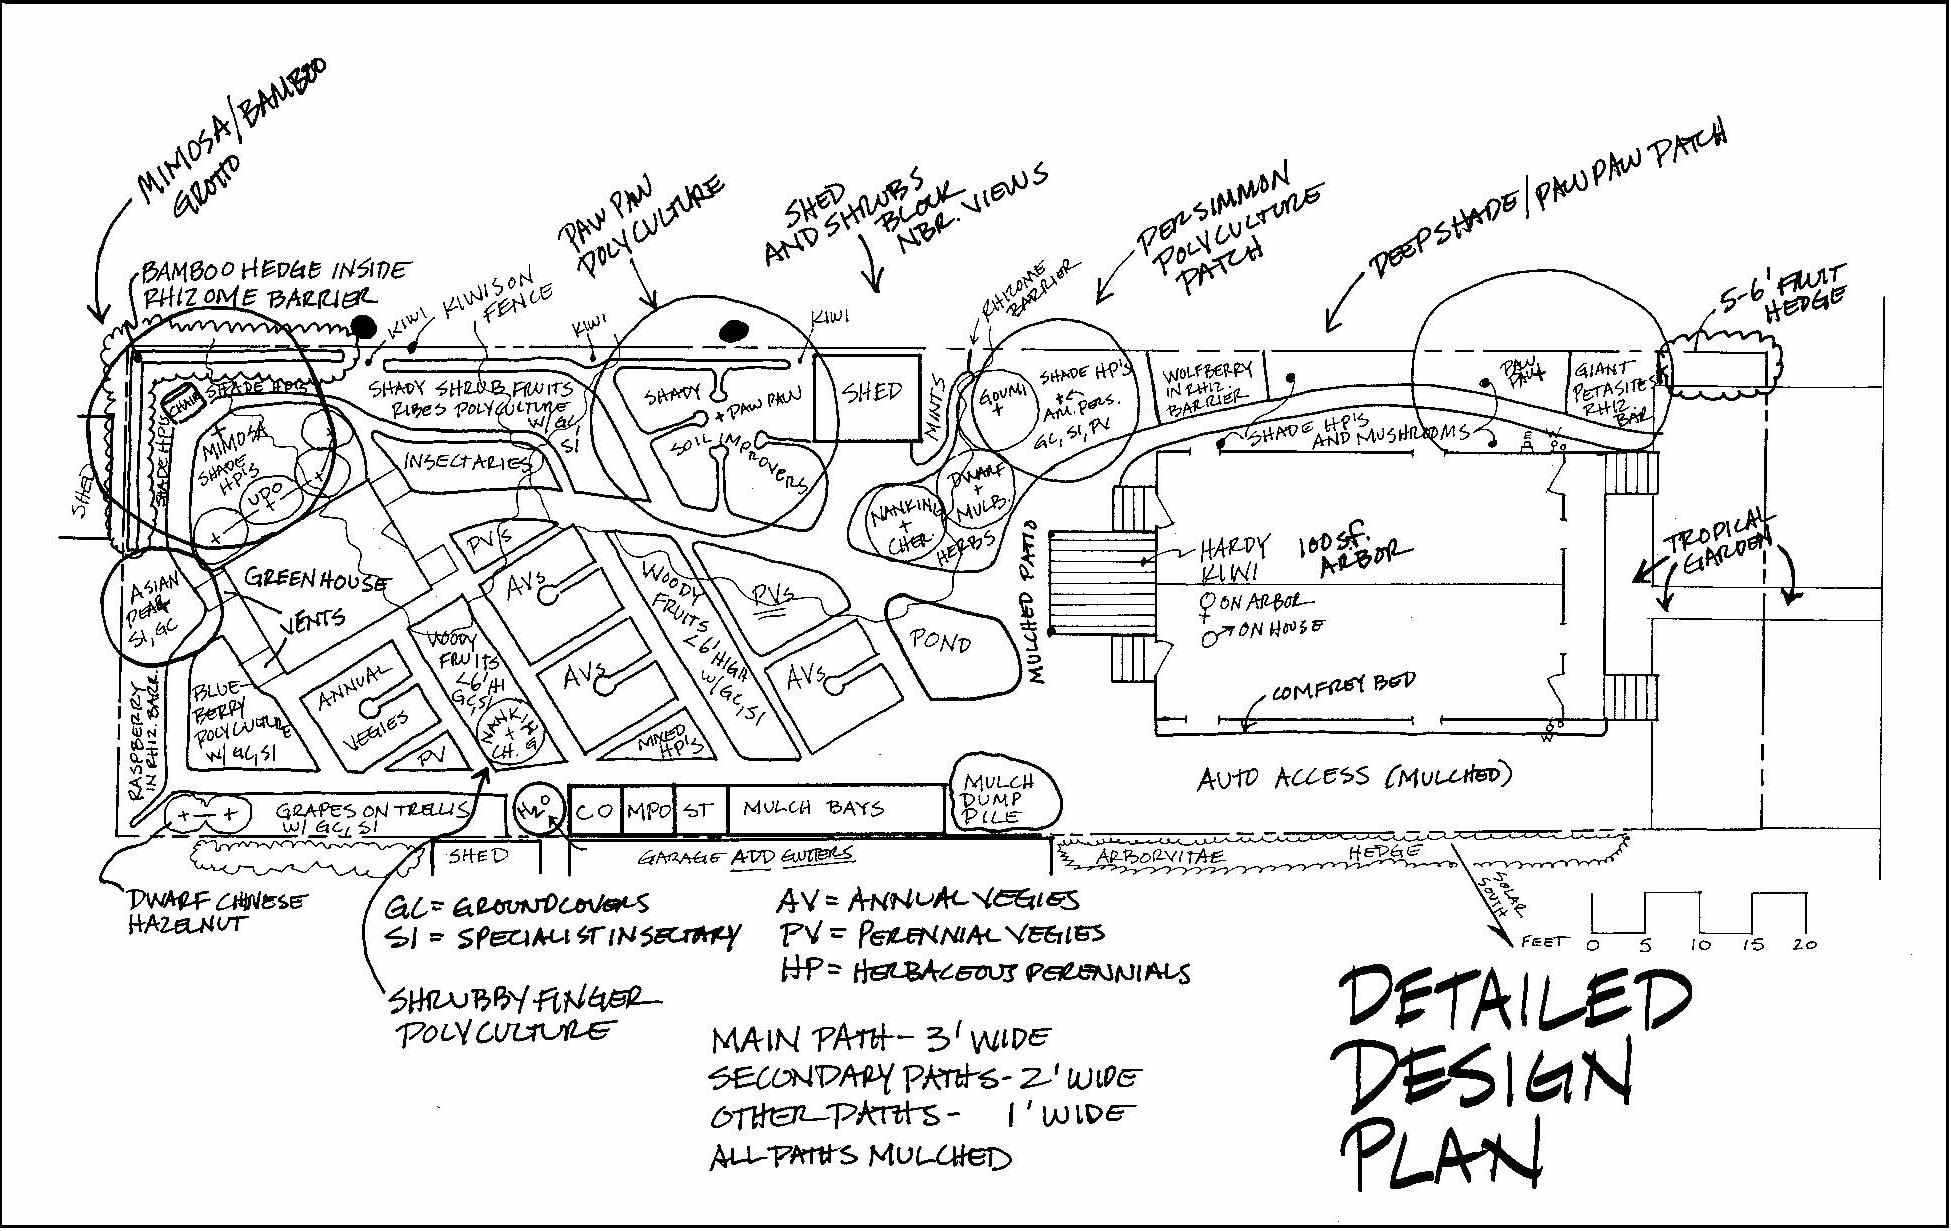 MIMOSA/BAMBOO
GROTTO
BAMBOO HEDGE INSIDE
RHIZOME BARRIER
KIWI
KIWIS ON
FENCE
PAW PAW
POLYCULTURE
KIWI
SHED
AND SHRUBS
BLOCK
NBR. VIEWS
KIWI
RHIZOME
BARRIER
PERSIMMON
POLYCULTURE
PATCH
DEEP SHADE/PAWPAW PATCH
5-6' FRUIT
HEDGE
CHAIR
SHADE HP'S
SHADE HP'S
MIMOSA
SHADE
HP'S
UDO
SHED
SHADY SHRUB FRUITS
RIBES POLYCULTURE
W/ GC,
SI
INSECTARIES
SHADY
+ PAW PAW
SOIL IMPROVERS
SHED
MINTS
GOUMI
+
SHADE HP'S
+
AM. PERS.
GC, SI, PV
WOLFBERRY
IN RHIZ.
BARRIER
PAW
PAW
+
GIANT
PETASITES
RHIZ.
BAR.
SHADE HP'S
AND MUSHROOMS
E
W
DWARF
+
MULB.
NANKING
+
CHER.
HERBS
ASIAN
PEAR
+
SI, GC
GREENHOUSE
VENTS
PV'S
AVS
WOODY
FRUITS
<6' HIGH
W/ GC, SI
PVS
AVS
AVS
POND
MULCHED PATIO
HARDY
KIWI
100 S.F.
ARBOR
♀ ON ARBOR
♂ ON HOUSE
TROPICAL
GARDEN
COMFREY BED
RASPBERRY
IN RHIZ. BARR.
BLUE-
BERRY
POLYCULTURE
W/ GC, SI
ANNUAL
VEGIES
PV
WOODY
FRUITS
<6' HI
GC, SI
NANKING
+
CH.
MIXED
HP'S
AUTO ACCESS (MULCHED)
GRAPES ON TRELLIS
W/ GC, SI
H2O
CO
MPO
ST
MULCH BAYS
MULCH
DUMP
PILE
SHED
GARAGE ADD GUTTERS
ARBORVITAE
HEDGE
DWARF CHINESE
HAZELNUT
GC = GROUNDCOVERS
SI = SPECIALIST INSECTARY
AV = ANNUAL VEGIES
PV = PERENNIAL VEGIES
HP = HERBACEOUS PERENNIALS
SHRUBBY FINGER
POLYCULTURE
SOLAR
SOUTH
FEET 0 5 10 15 20
MAIN PATH - 3' WIDE
SECONDARY PATHS - 2' WIDE
OTHER PATHS - 1' WIDE
ALL PATHS MULCHED
DETAILED
DESIGN
PLAN